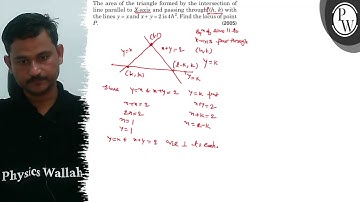 The area of the triangle formed by the intersection of
line parallel to X-axis and passing through P(h, k) with
the lines y = x and x + y = 2 is 4h². Find the locus of point
P. (2005)
(1,1)
y=x
x+y=2
(k, k)
(2-k, k)
y=k
line || to
pass through
(h, k)
y=k
Since y=x & x+y=2 y=k put
x+x=2 x+y=2
2x=2 x+k=2
x=1 x=2-k
y=1
y=x & x+y=2 are ⊥ to each.
Physics Wallah